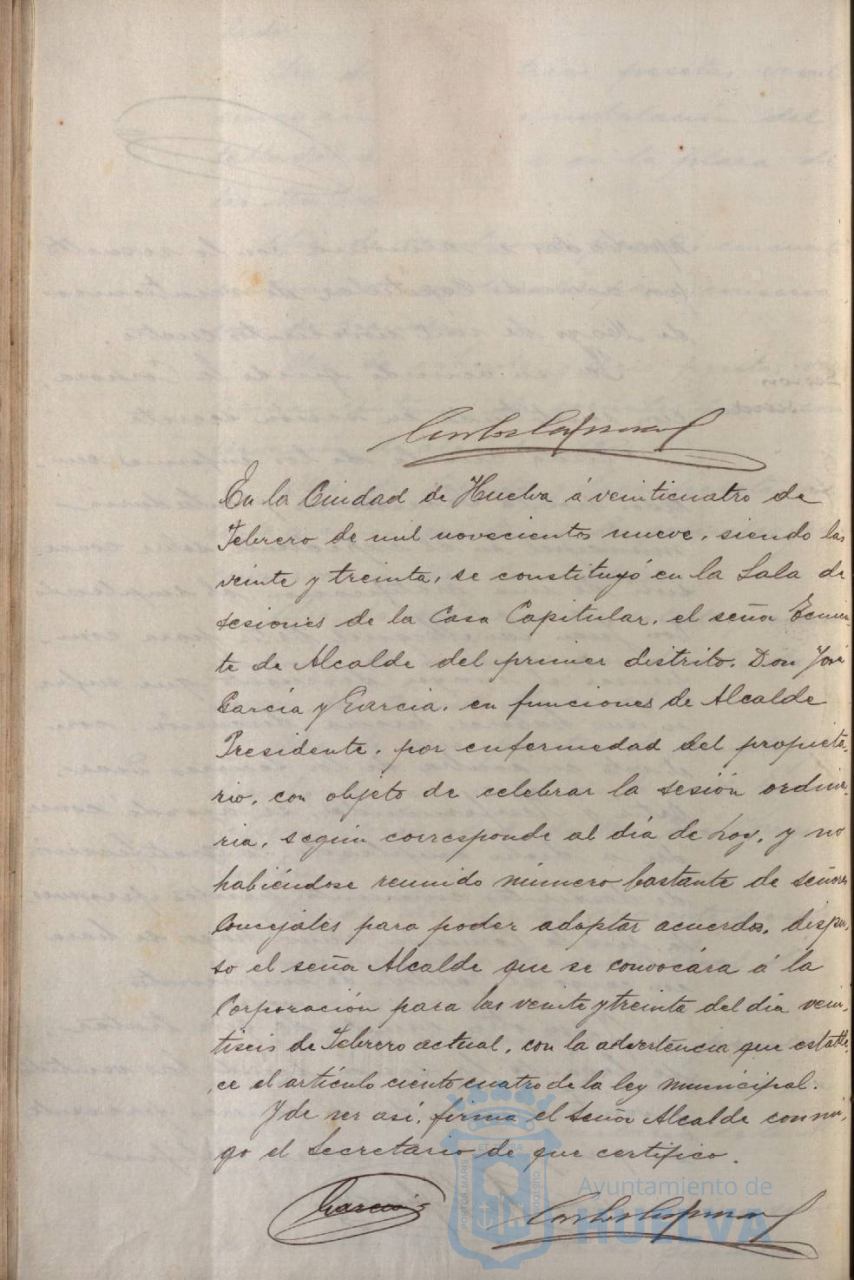 En la Ciudad de Huelva á veinticuatro de
Febrero de mil novecientos nueve, siendo las
veinte y treinta, se constituyó en la Sala de
sesiones de la Casa Capitular, el señor Tenien-
te de Alcalde del primer distrito, Don José
García y García, en funciones de Alcalde
Presidente, por enfermedad del propieta-
rio, con objeto de celebrar la sesión ordina-
ria, según corresponde al día de hoy, y no
habiéndose reunido número bastante de señores
Concejales para poder adoptar acuerdos, dispu-
so el señor Alcalde que se convocára á la
Corporación para las veinte y treinta del día vein-
tiseis de Febrero actual, con la advertencia que estable-
ce el artículo ciento cuatro de la ley municipal.
Y de ser así, firma el Señor Alcalde conmi-
go el Secretario de que certifico.
García
Ayuntamiento de
HUELVA